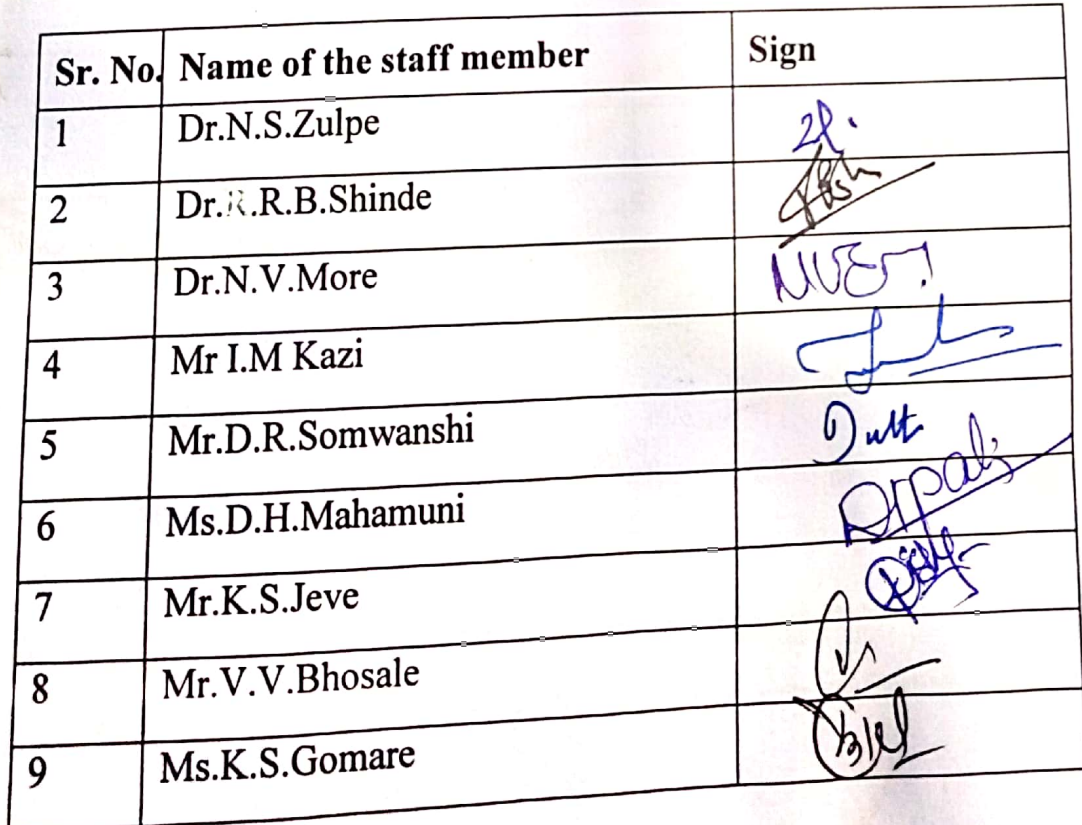 Sr. No. Name of the staff member Sign
1 Dr.N.S.Zulpe
2 Dr.R.R.B.Shinde
3 Dr.N.V.More
4 Mr I.M Kazi
5 Mr.D.R.Somwanshi
6 Ms.D.H.Mahamuni
7 Mr.K.S.Jeve
8 Mr.V.V.Bhosale
9 Ms.K.S.Gomare